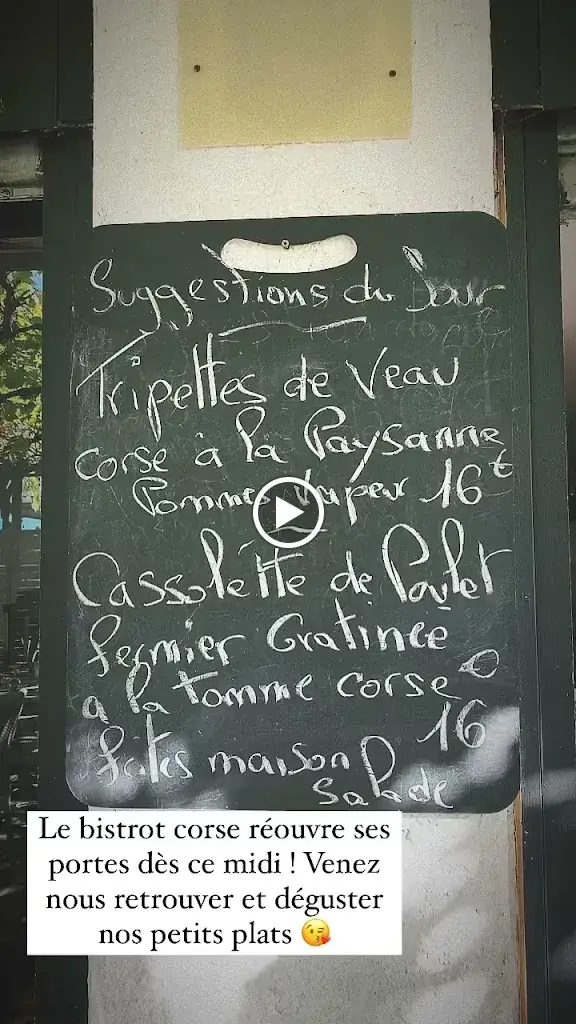 Suggestions du Jour
Tripettes de Veau
corse à la Paysanne
Pommes Vapeur 16€
Cassolette de Poulet
fermier Gratinée
a la tomme corse
16
frites maison
Salade
Le bistrot corse réouvre ses
portes dès ce midi ! Venez
nous retrouver et déguster
nos petits plats 😘